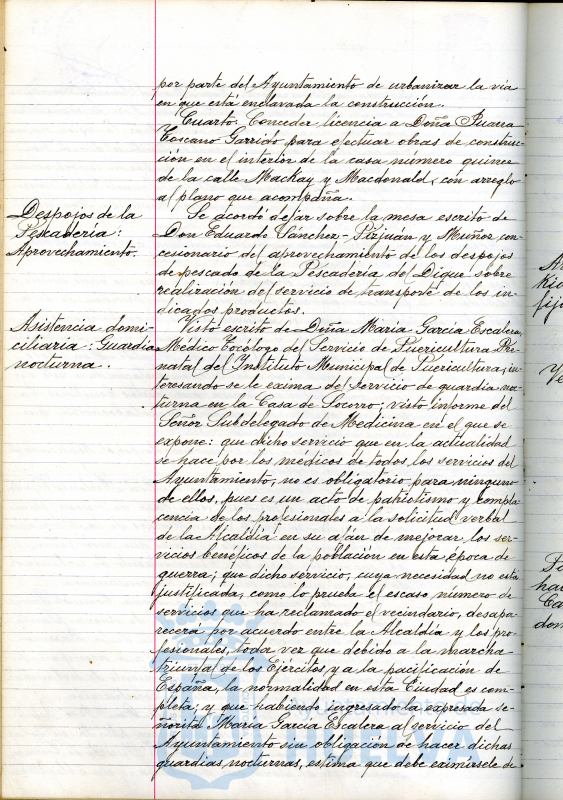 por parte del Ayuntamiento de urbanizar la vía
en que está enclavada la construcción.
Cuarto: Conceder licencia a Doña Juana
Toscano Garrido para efectuar obras de construc-
ción en el interior de la casa número quince
de la calle Mackay y Macdonald, con arreglo
al plano que acompaña.
Despojos de la
Pescadería:
Aprovechamiento.
Se acordó dejar sobre la mesa escrito de
Don Eduardo Sánchez-Pizjuán y Muñoz con-
cesionario del aprovechamiento de los despojos
de pescado de la Pescadería del Dique sobre
realización del servicio de transporte de los in-
dicados productos.
Asistencia domi-
ciliaria: Guardia
nocturna.
Visto escrito de Doña María García Escalera,
Médico Tocólogo del Servicio de Puericultura Pre-
natal del Instituto Municipal de Puericultura, in-
teresando se le exima del servicio de guardia noc-
turna en la Casa de Socorro; visto informe del
Señor Subdelegado de Medicina en el que se
expone: que dicho servicio que en la actualidad
se hace por los médicos de todos los servicios del
Ayuntamiento, no es obligatorio para ninguno
de ellos, pues es un acto de patriotismo y compla-
cencia de los profesionales a la solicitud verbal
de la Alcaldía en su afán de mejorar los ser-
vicios benéficos de la población en esta época de
guerra; que dicho servicio, cuya necesidad no está
justificada, como lo prueba el escaso número de
servicios que ha reclamado el vecindario, desapa-
recerá por acuerdo entre la Alcaldía y los pro-
fesionales, toda vez que debido a la marcha
triunfal de los Ejércitos, y a la pacificación de
España, la normalidad en esta Ciudad es com-
pleta; y que habiendo ingresado la expresada se-
ñorita María García Escalera al servicio del
Ayuntamiento sin obligación de hacer dichas
guardias nocturnas, estima que debe eximírsele de